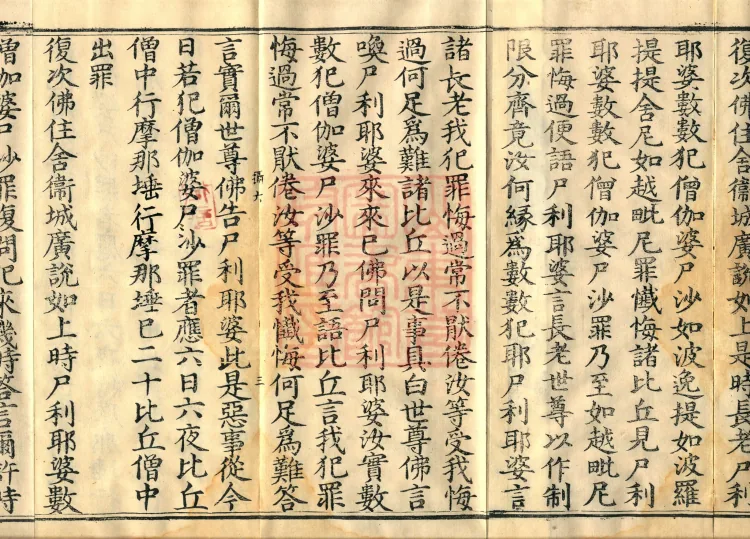 復次佛住舍衞城廣說如上是時長老尸利
耶婆數數犯僧伽婆尸沙如波逸提如波羅
提提舍尼如越毗尼罪懺悔諸比丘見尸利
耶婆數數犯僧伽婆尸沙罪乃至如越毗尼
罪悔過便語尸利耶婆言長老世尊以作制
限分齊竟汝何緣為數數犯耶尸利耶婆言
諸長老我犯罪悔過常不猒倦汝等受我悔
過何足為難諸比丘以是事具白世尊佛言
喚尸利耶婆來來已佛問尸利耶婆汝實數
數犯僧伽婆尸沙罪乃至語比丘言我犯罪
悔過常不猒倦汝等受我懺悔何足為難答
三
言實爾世尊佛告尸利耶婆此是惡事從今
日若犯僧伽婆尸沙罪者應六日六夜比丘
僧中行摩那埵行摩那埵已二十比丘僧中
出罪
復次佛住舍衞城廣說如上時尸利耶婆數
僧伽婆尸沙罪復問犯來幾時答言爾許時